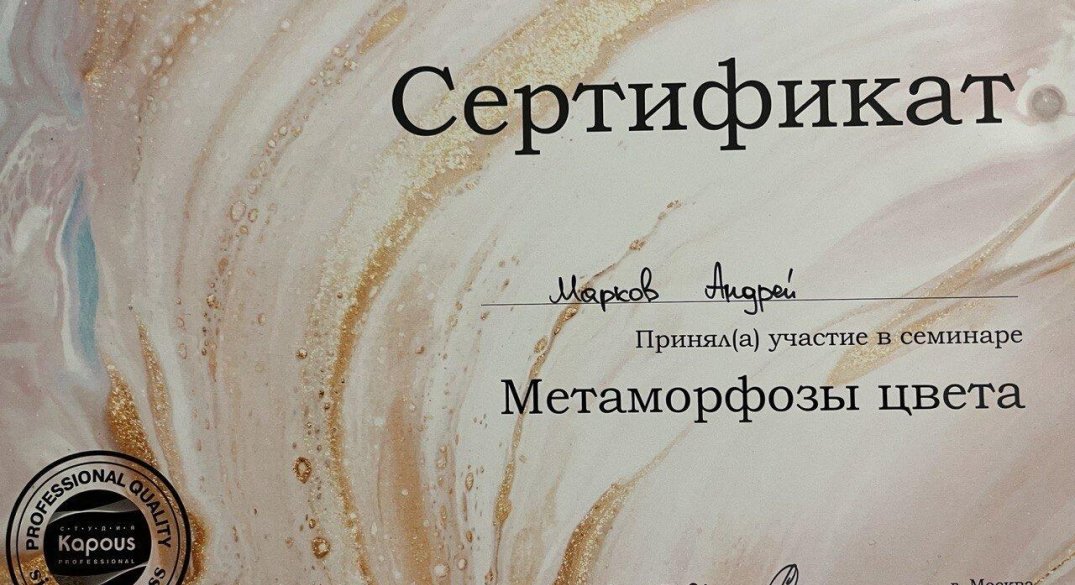 Сертификат
Марков Андрей
Принял(а) участие в семинаре
Метаморфозы цвета
PROFESSIONAL QUALITY
СТУДИЯ
Kapous
PROFESSIONAL
г. Москва